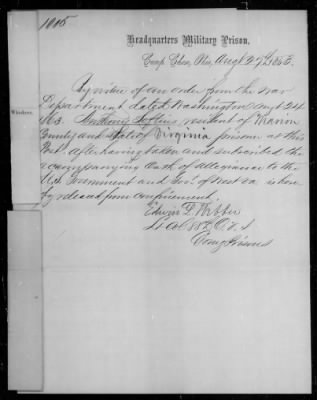 1005
Headquarters Military Prison,
Camp Chase, Ohio, Augt 27th 1863.
By virtue of an order from the War
Department dated Washington Augt 24
1863. resident of Marion
County and State of Virginia prisoner at this
Post, after having taken and subscribed the
accompanying Oath of allegiance to the
U.S. Government and Govt of West Va. is here
by released from confinement.
Edwin L. Webber
Lt Col 88th O.V.I
Comg Prisons
Witnesses.